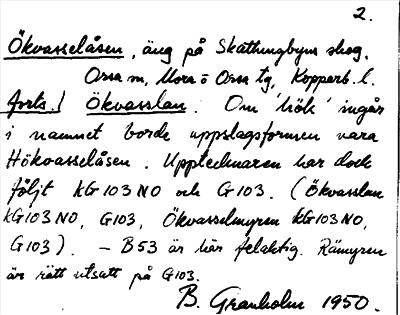 2.
Ökvasselåsen, äng på Skattungbyns skog,
Orsa sn, Mora o Orsa tg, Kopparb. l.
forts.) Ökvasslan. Om 'hök' ingår
i namnet borde uppslagsformen vara
Hökvasselåsen. Upptecknaren har dock
följt KG103NO och G103. (Ökvasslan
KG103NO, G103, Ökvasselmyren KG103NO,
G103). – B53 är här felaktig. Rämyren
är rätt utsatt på G103.
B. Granholm 1950.